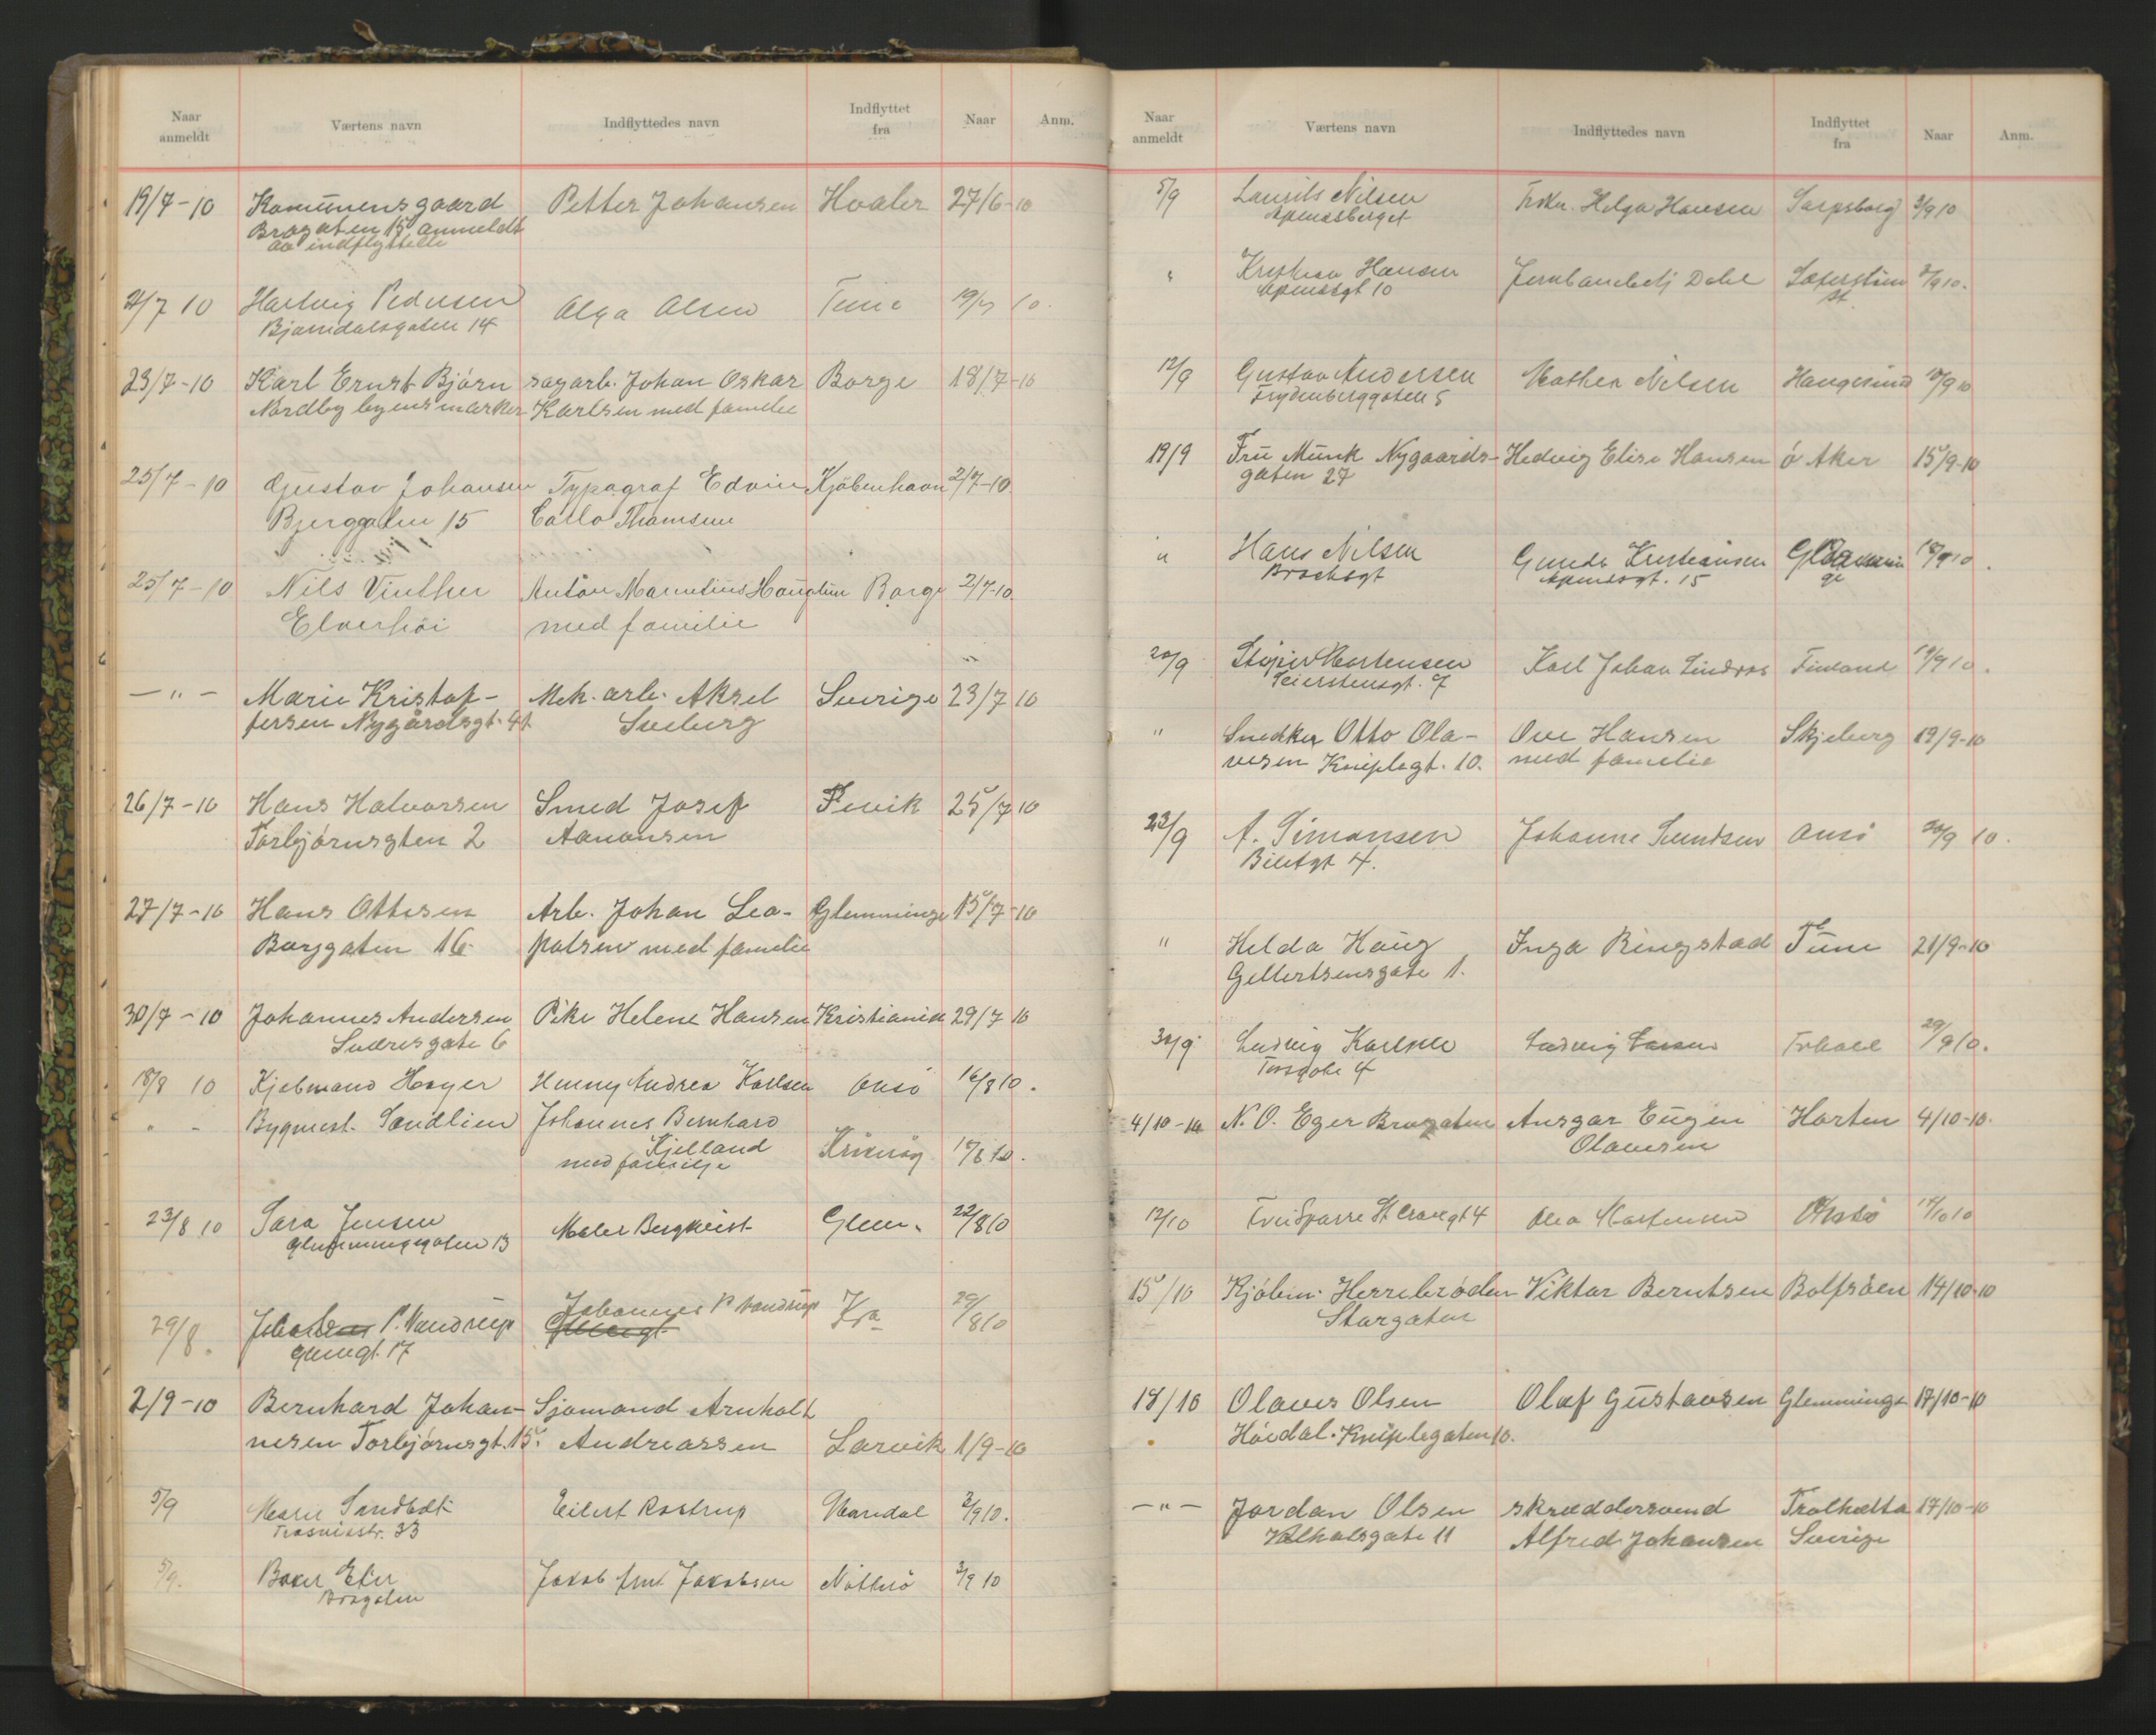 Naar anmeldt Værtens navn Indflyttedes navn Indflyttet fra Naar Anm.
19/7-10 Komunensgaard Petter Johansen Hvaler 27/6-10
Brogaten 15 anmeldt
aa indflyttelle
21/7 10 Hartvig Pedersen Olga Olsen Tune 19/7 10.
Bjørndalsgaten 14
23/7-10 Karl Ernst Bjørn sagarb. Johan Oskar Borge 18/7-10
Nordby byens marker Karlsen med familie
25/7-10 Gustav Johansen Typograf Edvin Kjøbenhavn 2/7-10.
Bjerggaten 15 Carlo Thomsen
25/7-10 Nils Vinther Anton Haugtun Borge 2/7-10.
Elverhøi med familie
-"- Marie Kristof- Mek. arb. Aksel Sverige 23/7 10
fersen Nygårdsgt. 41 Sveberg
26/7-10 Hans Halvorsen Smed Josef 25/7 10
Torbjørnsgten 2 Aanonsen
27/7-10 Hans Ottesen Arb. Johan Leo- Glemminge 15/7-10
Borggaten 16 polsen med familie
30/7-10 Johannes Andersen Pike Helene Hansen Kristiania 29/7 10
Sverresgate 6
18/8 10 Kjøbmand Høyer Henny Andrea Karlsen Onsø 16/8 10.
" - Bygmest. Sandlien Johannes Bernhard
Kjelland
med familje 17/8 10.
23/8 10 Sara Jensen Maler Bergkvist Glem. 22/8 10
Glemmingegaten 13
29/8. P. Vandrup Johannes P. Vandrup Kra 29/8 10
17
2/9-10 Bernhard Johan- Sjømand Arnholt
nesen Torbjørnsgt. 15. Andreassen Larvik 1/9-10
5/9 Marie Sandbæk Eilert Rostrup Mandal 3/9 10.
33
5/9. Baker Eger Jakob Jakobsen Nøtterø 3/9 10
Brogaten
Naar anmeldt Værtens navn Indflyttedes navn Indflyttet fra Naar Anm.
5/9 Laurits Nilsen Frkn. Helga Hansen Sarpsborg 3/9 10
Apenesberget
" Kristian Hansen Jernbanebetj Dahl 3/9 10.
Apenesgt 10 st.
12/9 Gustav Andersen Mathea Nilsen Haugesund 10/9 10
Frydenberggaten 5
19/9 Fru Munk Nygaards- Hedvig Elise Hansen Ø Aker 15/9-10
gaten 27
" Hans Nilsen Gunda Kristiansen 18/9 10.
Brochsgt Apenesgt. 15
20/9 Mortensen Karl Johan Lindros Finland 19/9 10.
Seierstensgt. 7
" Snedker Otto Ola- Ove Hansen Skjeberg 19/9-10
vesen Kniplegt. 10. med familie
23/9 A. Simonsen Johanne Onsø 20/9 10.
Biletgt 4.
" Helda Haug Inga Ringstad Tune 21/9-10
Gellertsensgate 1.
30/9 Ludvig Karlsen Ludvig Larsen 29/9 10.
4
4/10-10 N. O. Eger Brogaten Ansgar Eugen Horten 4/10-10.
Olavesen
12/10 Fru Sparre St Crouxgt 4 Olea Martensen Onsø 11/10 10
15/10 Kjøbm. Herrebrøden Viktor Berntsen Rolfsøen 14/10-10
Storgaten
18/10 Olaves Olsen Olaf Gustavsen Glemminge 17/10-10
Høidal. Kniplegaten 10.
-"- Jordan Olsen skræddersvend Trolhætta 17/10-10
Valhalsgate 11 Alfred Johansen Sverige